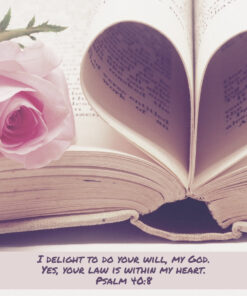 I delight to do your will, my God.
Yes, your law is within my heart.
Psalm 40:8